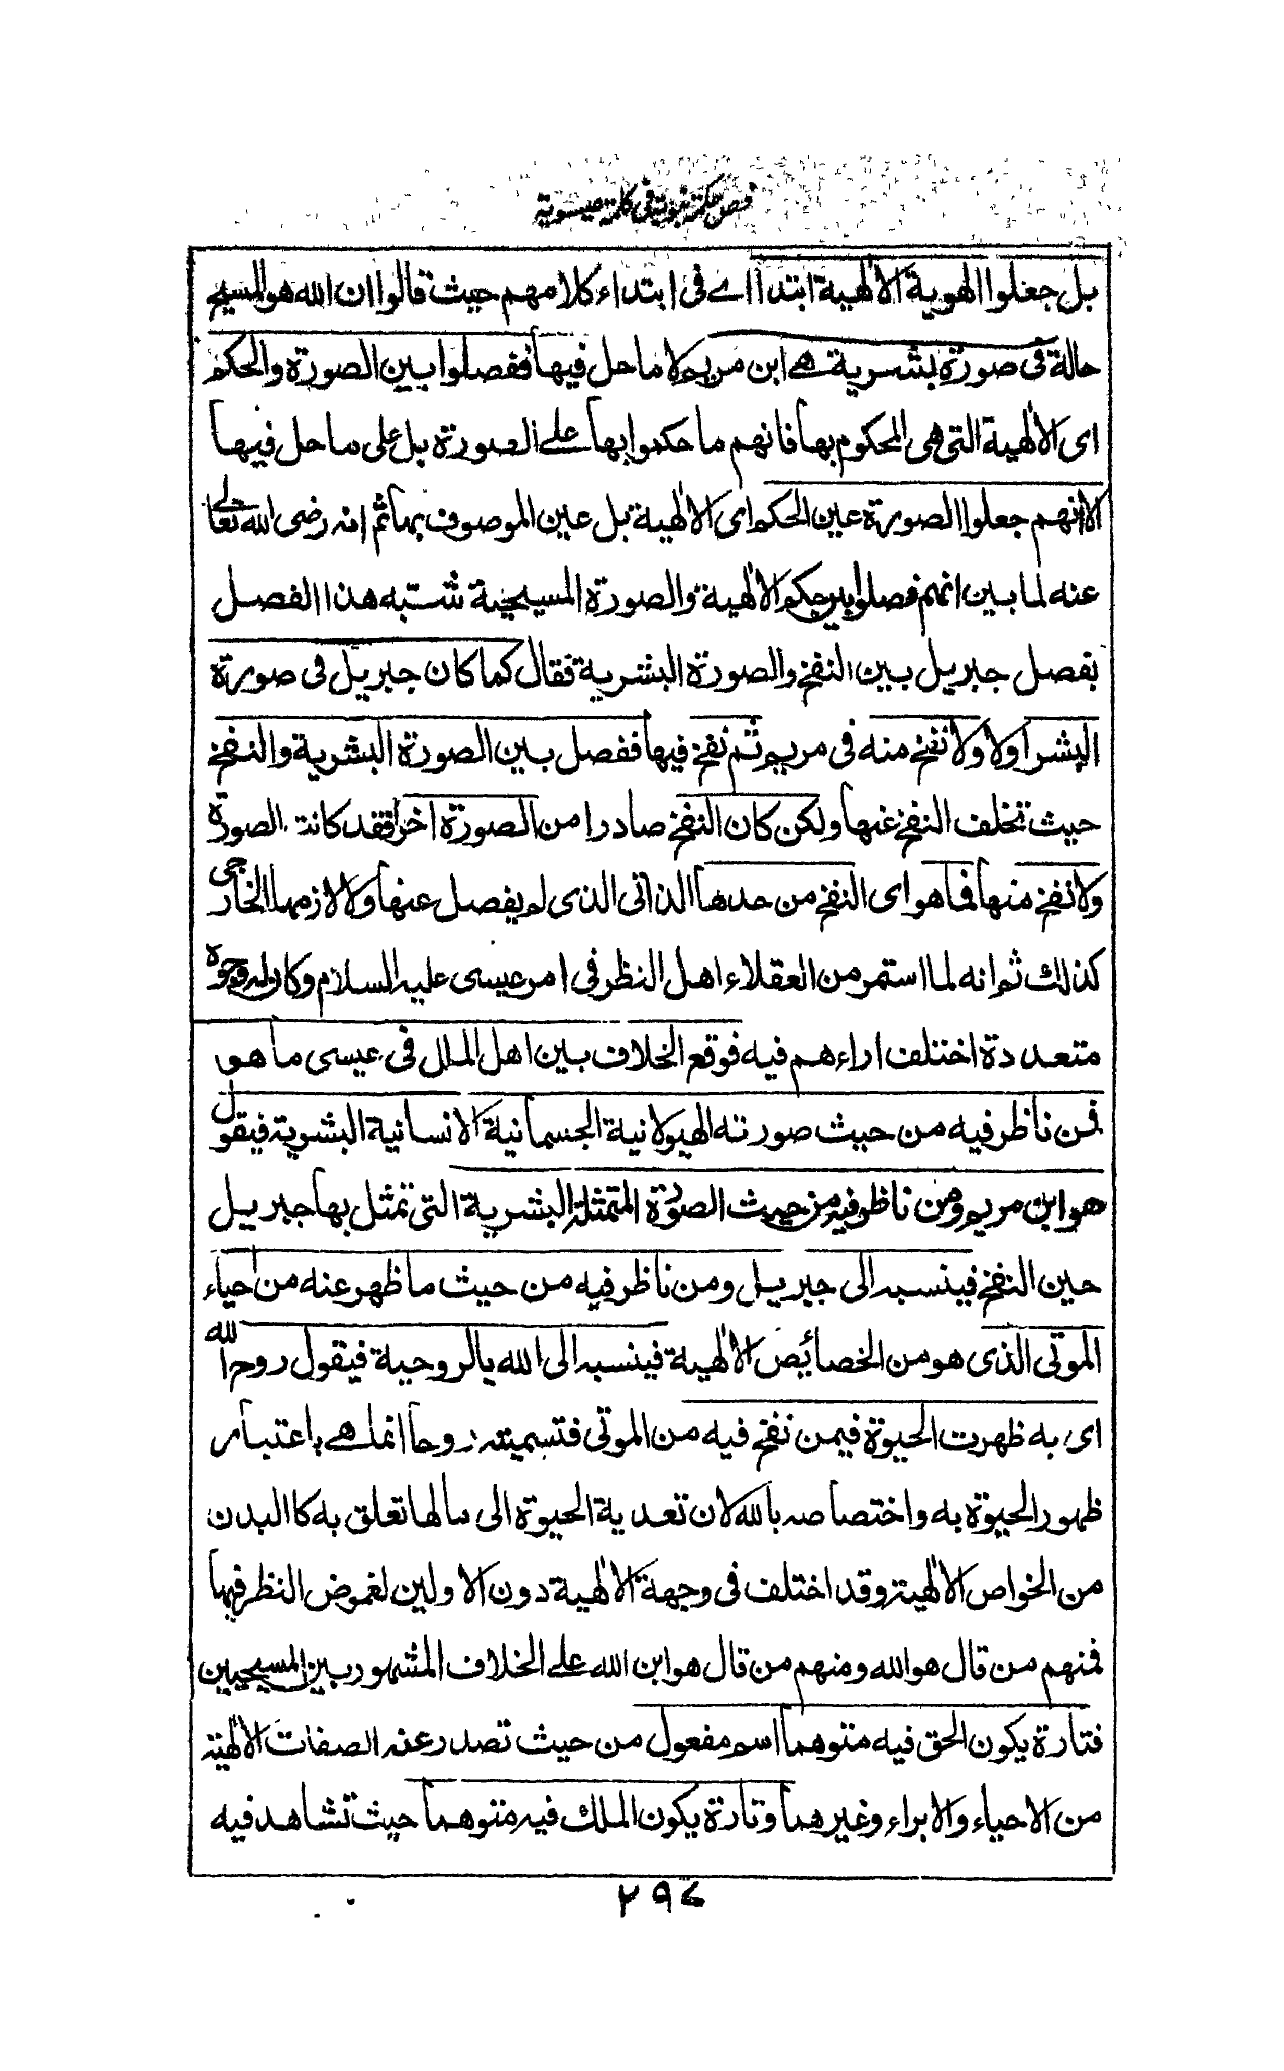 فص حكمة نبوية في كلمة عيسوية
بل جعلوا الهوية الالٰهية ابتدا اے فی ابتداء كلامهم حيث قالوا ان الله هو المسيح
حالة فی صورة بشرية هے ابن مريم لا ما حل فيها ففصلوا بين الصورة والحكم
ای الالٰهية التی هی المحكوم بها فانهم ما حكموا بها علے الصورة بل علی ما حل فيها
لا انهم جعلوا الصورة عين الحكم ای الالٰهية بل عين الموصوف بها ثم انه رضی الله تعالے
عنه لما بين انهم فصلوا بين حكم الالٰهية والصورة المسيحية شبه هذا الفصل
بفصل جبريل بين النفخ والصورة البشرية فقال كما كان جبريل فی صورة
البشر اولا ولا نفخ منه فی مريم ثم نفخ فيها ففصل بين الصورة البشرية والنفخ
حيث تخلف النفخ عنها ولكن كان النفخ صادرا من الصورة اخرا فقد كانت الصورة
ولا نفخ منها فما هو ای النفخ من حدها الذاتی الذی لم يفصل عنها ولا لازمها الخارجی
كذالك ثم انه لما استمر من العقلاء اهل النظر فی امر عيسى عليه السلام وكان له وجوه
متعددة اختلف اراءهم فيه فوقع الخلاف بين اهل الملل فی عيسی ما هو
فمن ناظر فيه من حيث صورته الهيولانية الجسمانية الانسانية البشرية فيقول
هو ابن مريم ومن ناظر فيه من حيث الصورة المتمثلة البشرية التی تمثل بها جبريل
حين النفخ فينسبه الی جبريل ومن ناظر فيه من حيث ما ظهر عنه من احياء
الموتی الذی هو من الخصائص الالٰهية فينسبه الی الله بالروحية فيقول روح الله
ای به ظهرت الحيوة فيمن نفخ فيه من الموتی فتسميته روحا انما هے باعتبار
ظهور الحيوة به واختصاصه بالله لان تعدية الحيوة الی مالها تعلق به كالبدن
من الخواص الالٰهية وقد اختلف فی وجهة الالٰهية دون الاولين لغموض النظر فيها
فمنهم من قال هو الله ومنهم من قال هو ابن الله علے الخلاف المشهور بين المسيحيين
فتارة يكون الحق فيه متوهما اسم مفعول من حيث تصدر عنه الصفات الالٰهية
من الاحياء والابراء وغيرهما وتارة يكون الملك فيه متوهما حيث تشاهد فيه
٢٩٧